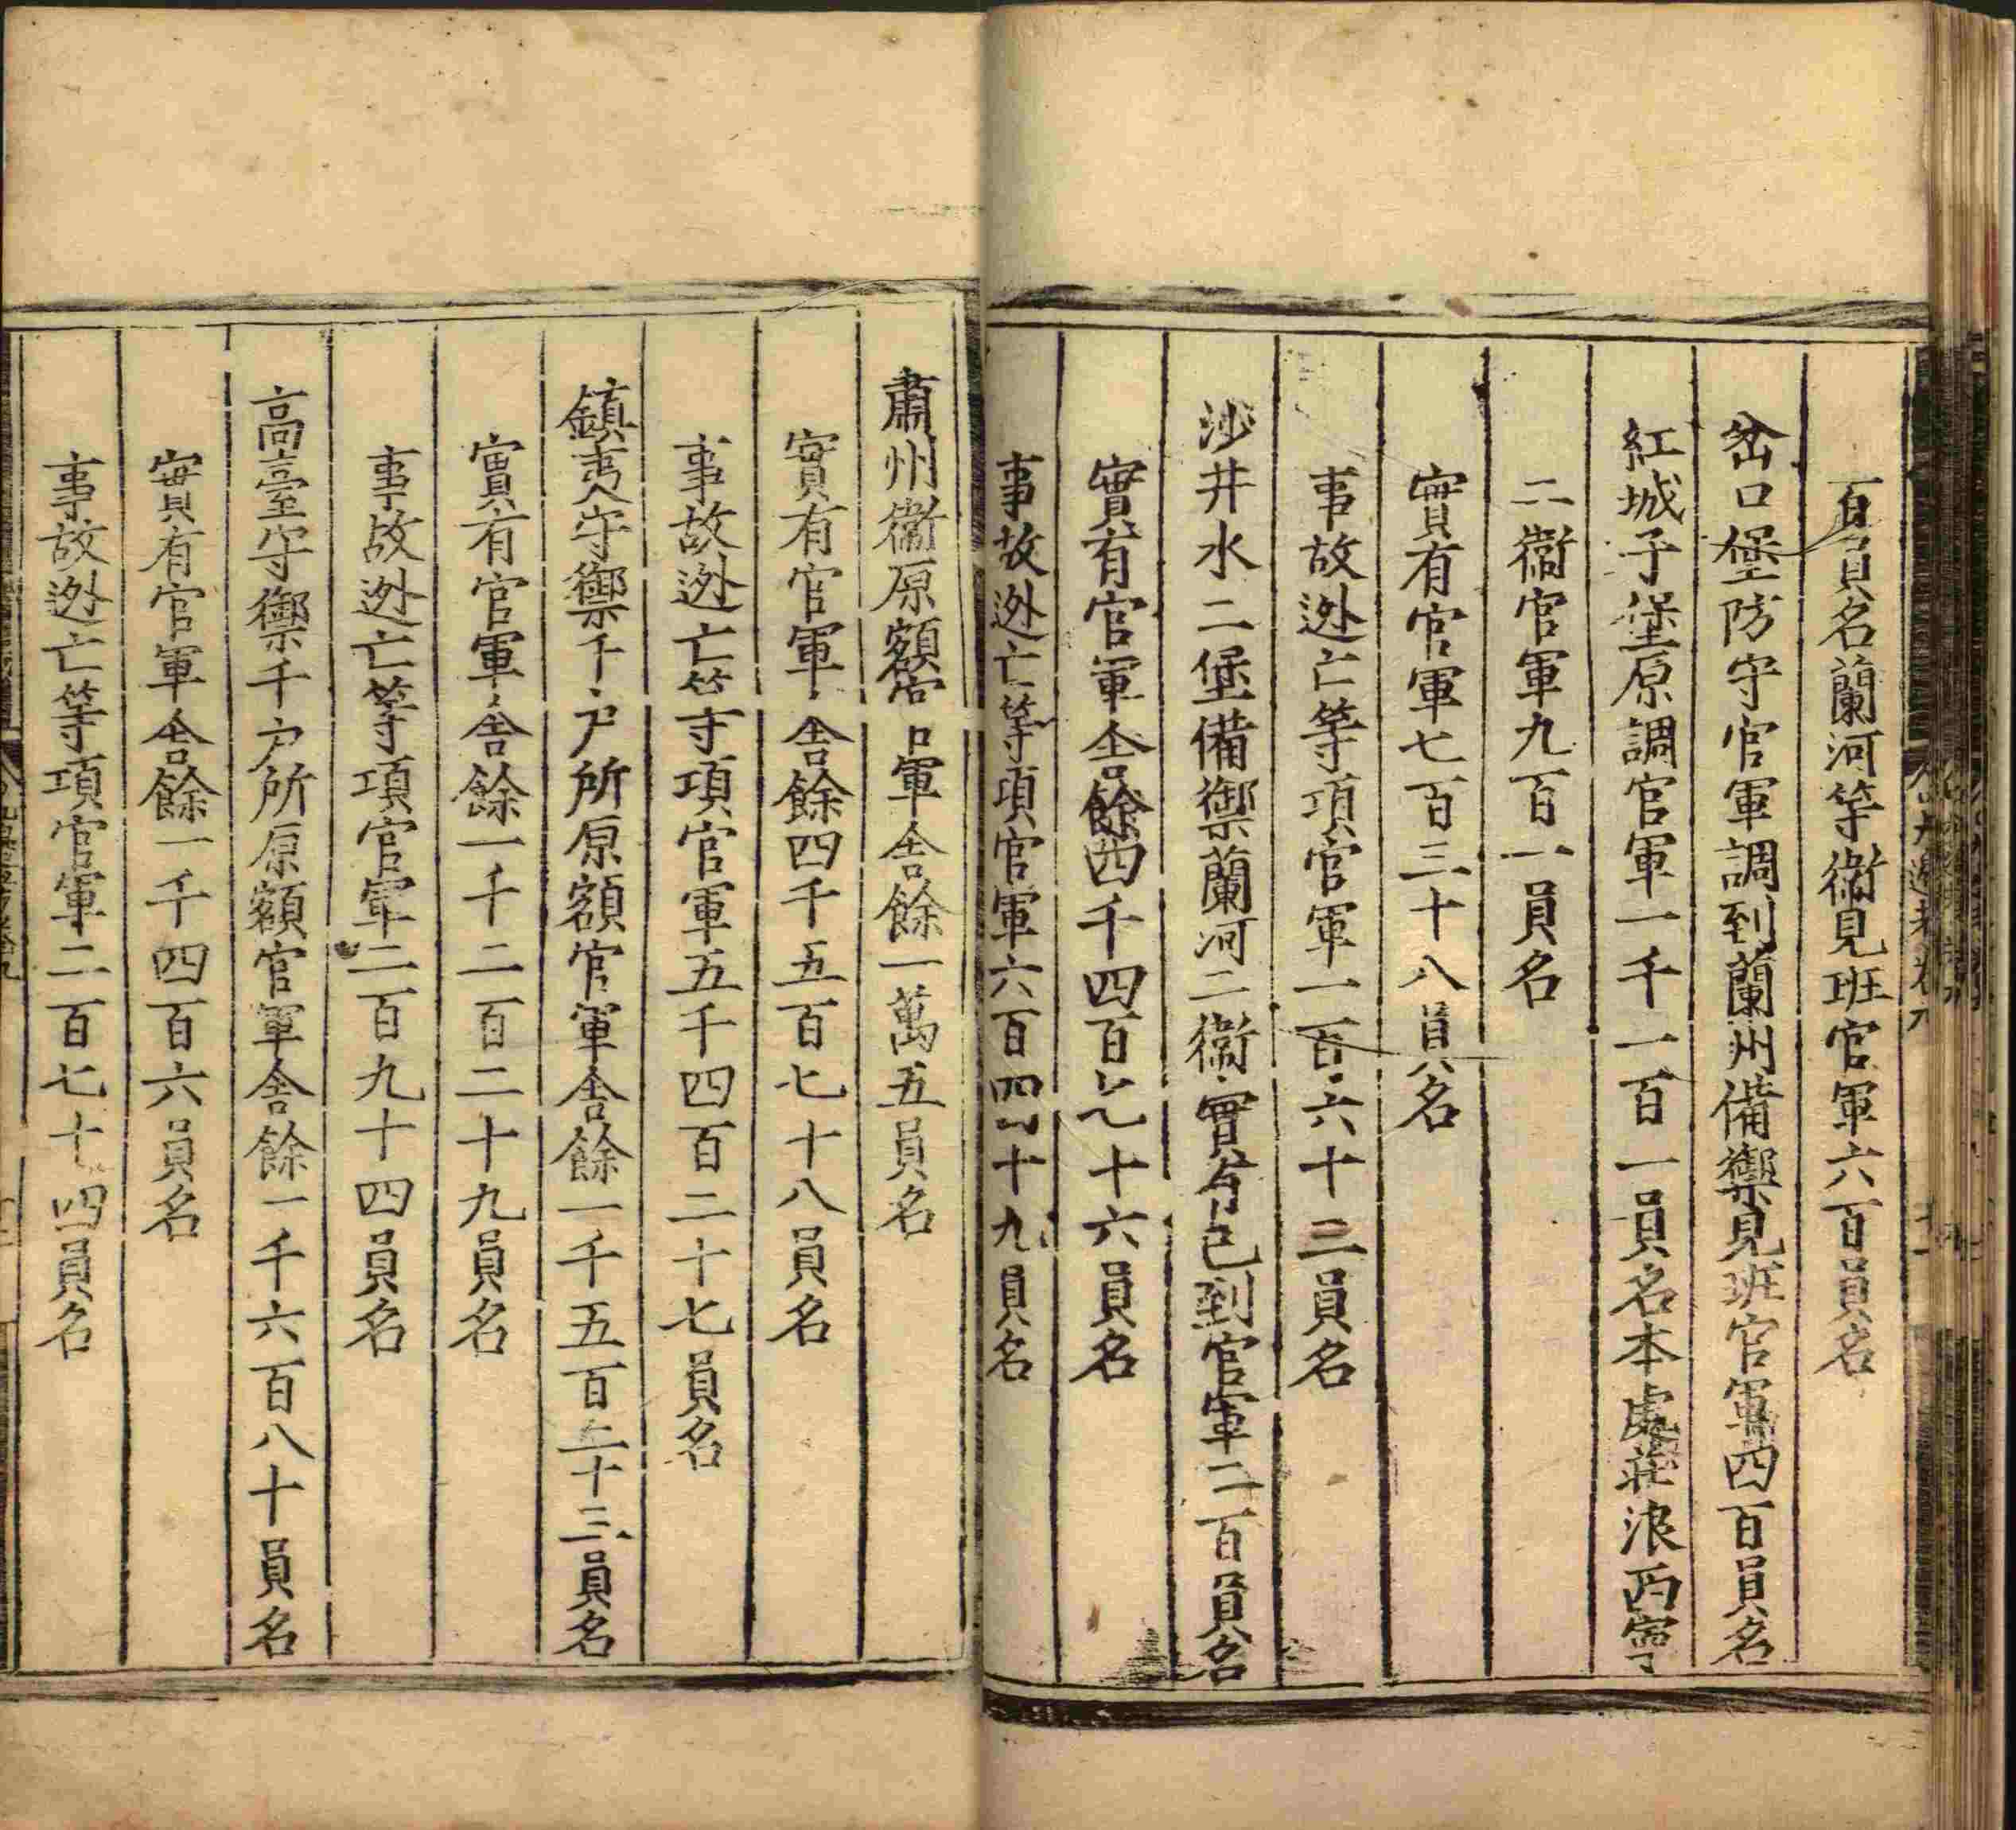 百員名蘭河等衛見班官軍六百員名
岔口堡防守官軍調到蘭州備禦見班官軍四百員名
紅城子堡原調官軍一千一百一員名本處莊浪西寧
二衛官軍九百一員名
實有官軍七百三十八員名
事故迯亡等項官軍一百六十三員名
沙井水二堡備禦蘭河二衛實有已到官軍二百員名
實有官軍舍餘四千四百七十六員名
事故迯亡等項官軍六百四十九員名
肅州衛原額官軍舍餘一萬五員名
實有官軍舍餘四千五百七十八員名
事故迯亡等項官軍五千四百二十七員名
鎮夷守禦千戶所原額官軍舍餘一千五百二十三員名
實有官軍舍餘一千二百二十九員名
事故迯亡等項官軍二百九十四員名
高臺守禦千戶所原額官軍舍餘一千六百八十員名
實有官軍舍餘一千四百六員名
事故迯亡等項官軍二百七十四員名